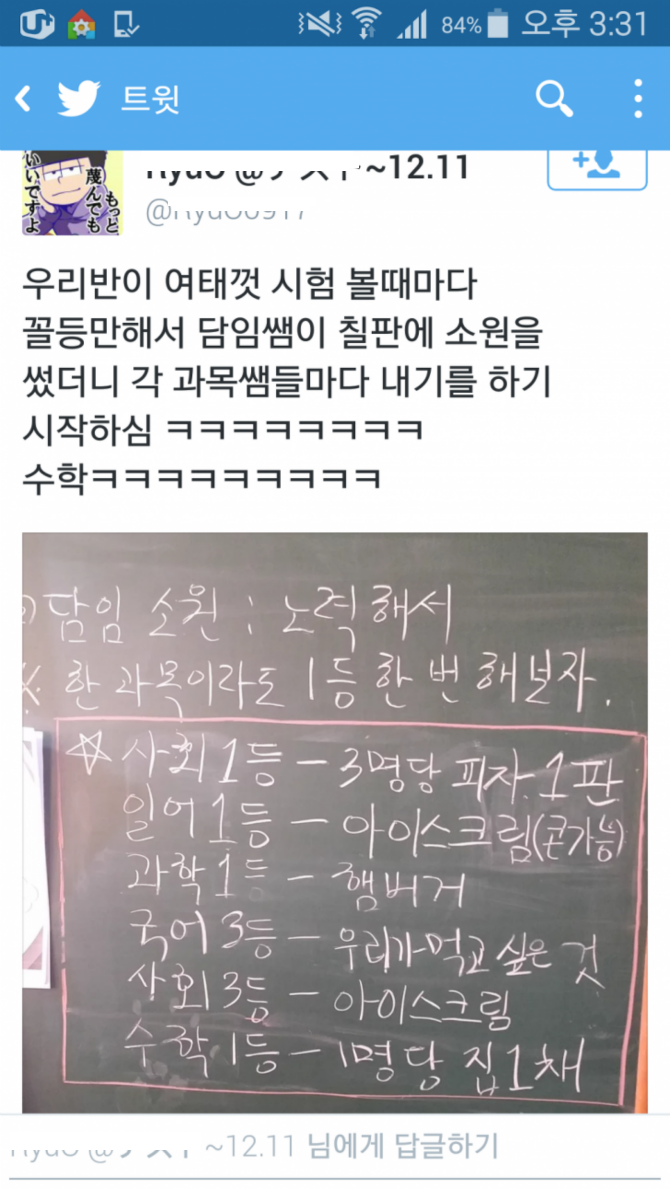 84% 오후 3:31
트윗
もっと
蔑んでも
いいですよ
~12.11
우리반이 여태껏 시험 볼때마다
꼴등만해서 담임쌤이 칠판에 소원을
썼더니 각 과목쌤들마다 내기를 하기
시작하심 ㅋㅋㅋㅋㅋㅋㅋㅋ
수학ㅋㅋㅋㅋㅋㅋㅋㅋㅋ
담임 소원 : 노력해서
※ 한 과목이라도 1등 한 번 해보자.
☆ 사회 1등 - 3명당 피자 1판
일어 1등 - 아이스크림(콘가능)
과학 1등 - 햄버거
국어 3등 - 우리가 먹고 싶은 것
사회 3등 - 아이스크림
수학 1등 - 1명당 집 1채
~12.11 님에게 답글하기